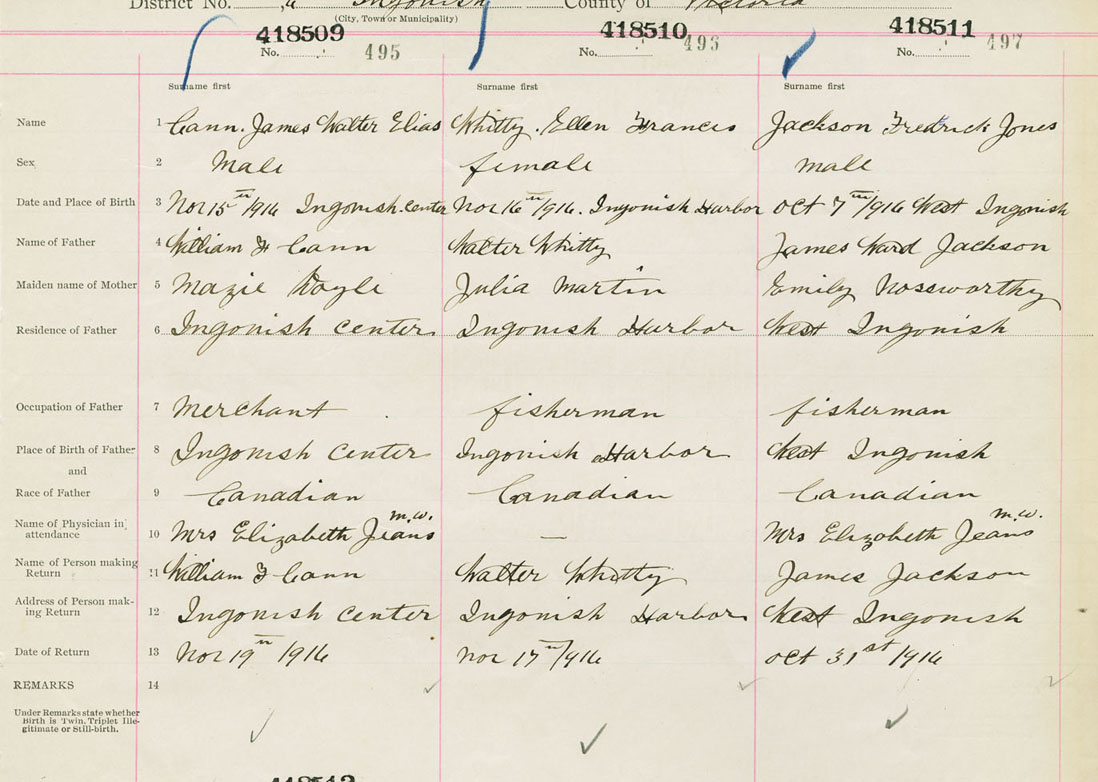 District No. Ingonish County of Victoria
(City, Town or Municipality)
418509 418510 418511
No. 495 No. 496 No. 497
Surname first Surname first Surname first
Name 1 Cann. James Walter Elias Whitty. Ellen Francis Jackson Fredrick Jones
Sex 2 Male female male
Date and Place of Birth 3 Nov 15th 1916 Ingonish. Center Nov 16th 1916. Ingonish Harbor Oct 7th 1916 West Ingonish
Name of Father 4 William F Cann Walter Whitty James Ward Jackson
Maiden name of Mother 5 Mazie Doyle Julia Martin Emily Nossworthy
Residence of Father 6 Ingonish Center Ingonish Harbor West Ingonish
Occupation of Father 7 Merchant fisherman fisherman
Place of Birth of Father 8 Ingonish Center Ingonish Harbor West Ingonish
and
Race of Father 9 Canadian Canadian Canadian
Name of Physician in attendance 10 Mrs Elizabeth Jeans M.W. — Mrs Elizabeth Jeans M.W.
Name of Person making Return 11 William F Cann Walter Whitty James Jackson
Address of Person mak-ing Return 12 Ingonish Center Ingonish Harbor West Ingonish
Date of Return 13 Nov 19th 1916 Nov 17th 1916 Oct 31st 1916
REMARKS 14
Under Remarks state whether
Birth is Twin, Triplet Ille-
gitimate or Still-birth.